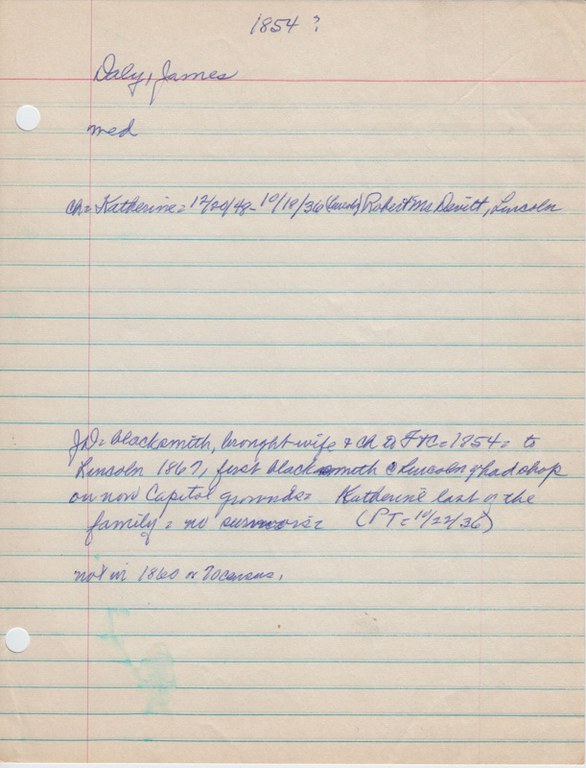 1854 ?
Daly, James
med
ch = Katherine = 12/20/48 - 10/19/36 Robert McDevitt, Lincoln
JD = blacksmith, brought wife & ch to = 1854 = to
Lincoln 1867, first blacksmith @ Lincoln & had shop
on now Capitol grounds = Katherine last of the
family = no survivors = (PT = 10/22/36)
not in 1860 or 70 census.